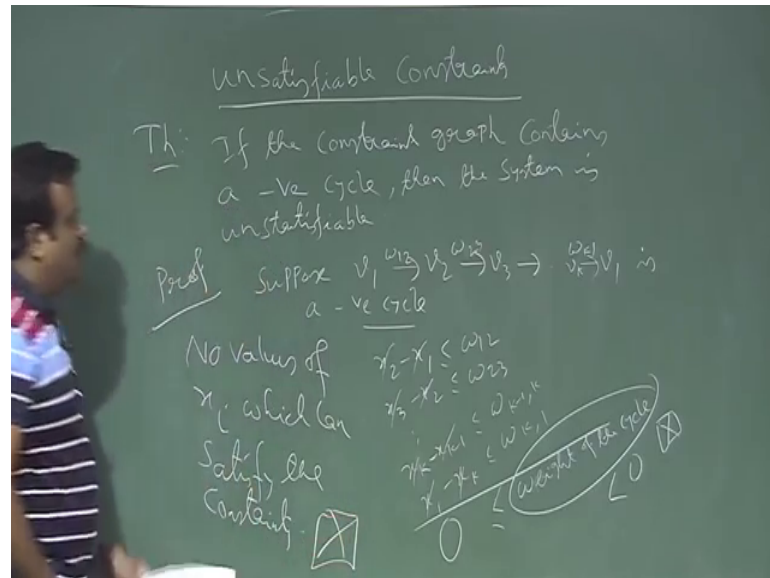 Unsatisfiable Constraints
Th: If the Constraint graph Contains
a -ve cycle, then the System is
unstatifiable
Proof Suppose v₁ →^{ω₁₂} v₂ →^{ω₂₃} v₃ → . v_k →^{ω_{k,1}} v₁ is
a -ve cycle
No values of
x_i which can
Satisfy the
Constraints.
x₂ - x₁ ≤ ω₁₂
x₃ - x₂ ≤ ω₂₃
⋮
x_k - x_{k-1} ≤ ω_{k-1,k}
x₁ - x_k ≤ ω_{k,1}
0 ≤ (weight of the cycle) < 0